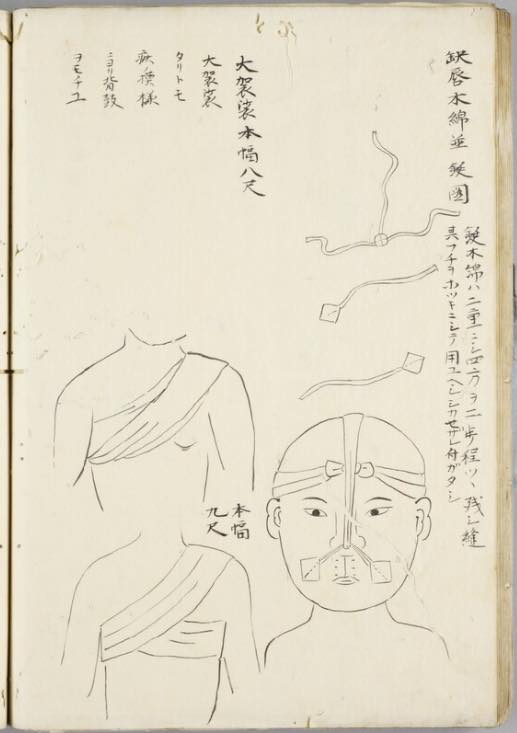 缺唇木綿並鋏圖
鋏木綿ハ二重ニシ四方ヲ二歩程ツヽ残シ縫
其フチヲホットニシテ用ユヘシシカセザレ付ガタシ
大袈裟本幅八尺
大袈裟
タリトモ
疾模様
ニヨリ背鼓
ヲモチユ
本幅
九尺